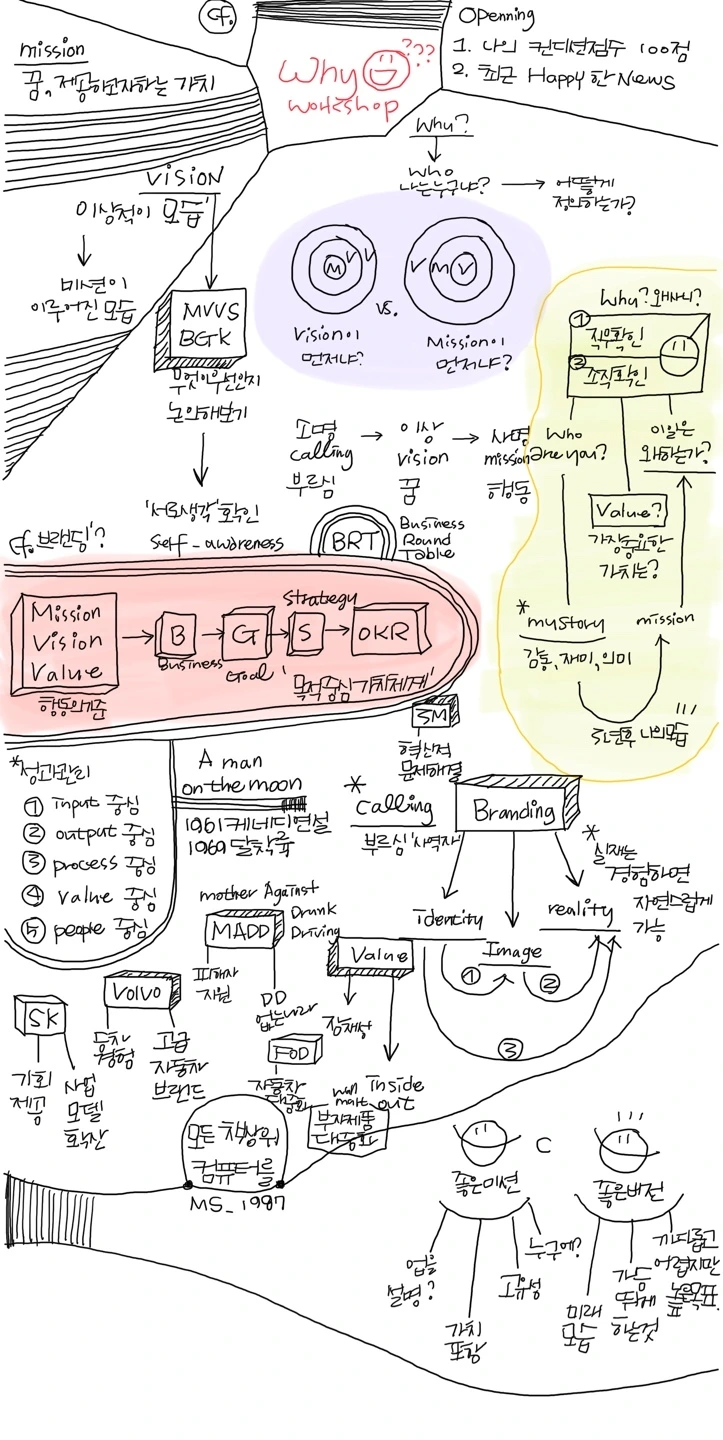 cf.
Openning
1. 나의 컨디션점수 100점
2. 최근 Happy한 News
Why ???
workshop
mission
꿈, 제공하고자하는 가치
vision
이상적이 모습'
미션이
이루어진 모습
MVVS
BGK
무엇이우선인지
논의해보기
'서로생각'확인
self-awareness
Why?
Who
나는누구냐?
어떻게
정의하는가?
M V V
vs.
V M V
Vision이
먼저냐?
Mission이
먼저냐?
소명
calling
부르심
이상
vision
꿈
사명
mission
행동
Why? 왜사니?
① 직무확인
② 조직확인
Who
are you?
이일은
왜하는가?
Value?
가장중요한
가치는?
* mystory
감동, 재미, 의미
mission
5년후 나의모습
cf. 브랜딩'?
BRT
Business
Round
Table
Mission
Vision
Value
행동의기준
B
Business
G
Goal
Strategy
S
OKR
'목적중심가치체계'
SM
혁신적
문제해결
*성과관리
① input 중심
② output 중심
③ process 중심
④ value 중심
⑤ people 중심
A man
on the moon
1961케네디연설
1969달착륙
* calling
부르심 '사역자'
Branding
* 실재는
경험하면
자연스럽게
가능
identity
Image
reality
① ②
③
mother Against
Drunk
Driving
MADD
피해자
지원
DD
없는나라
Value
잠재성
inside
out
Volvo
고급
자동차
브랜드
SK
기회
제공
사업
모델
확산
FOD
자동차
대중화
wall
mart
부자제품
대중화
모든 책상위
컴퓨터를
MS_1987
좋은미션
c
좋은비전
업을
설명?
가치
포함
고유성
누구에?
미래
모습
가슴
뛰게
하는것
까다롭고
어렵지만
높은목표.